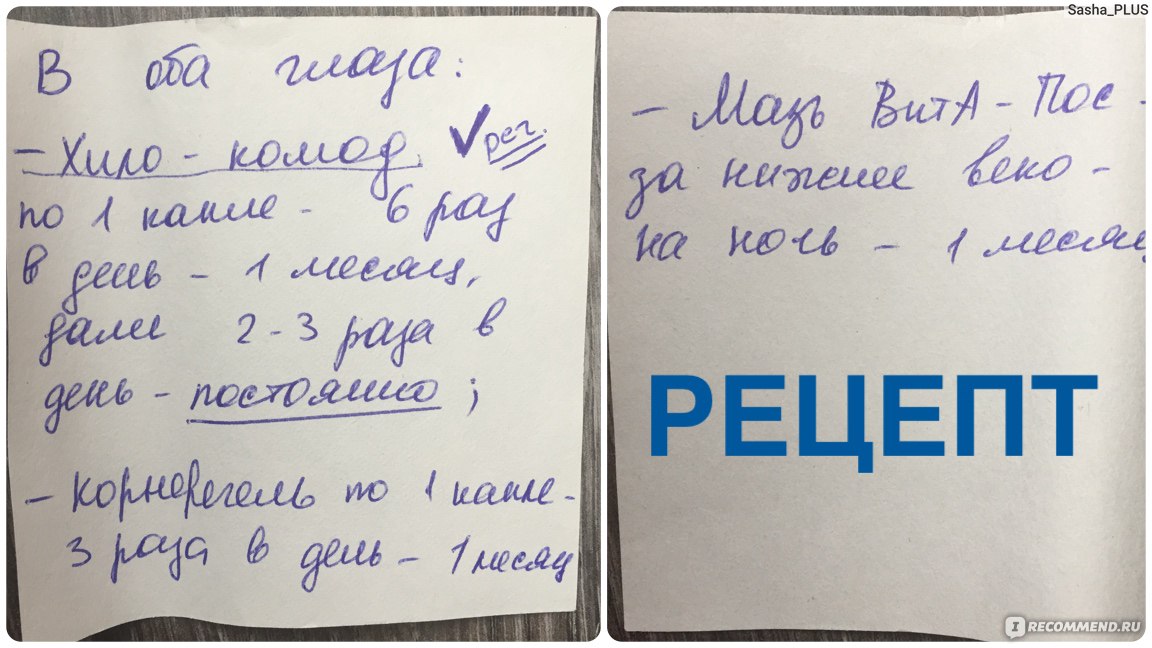 В оба глаза:
- Хило - комод. ✓ рег.
по 1 капле - 6 раз
в день - 1 месяц,
далее 2-3 раза в
день - постоянно ;
- Корнерегель по 1 капле -
3 раза в день - 1 месяц
Sasha_PLUS
- Мазь ВитА - Пос -
за нижнее веко -
на ночь - 1 месяц
РЕЦЕПТ
IRECOMMEND.RU